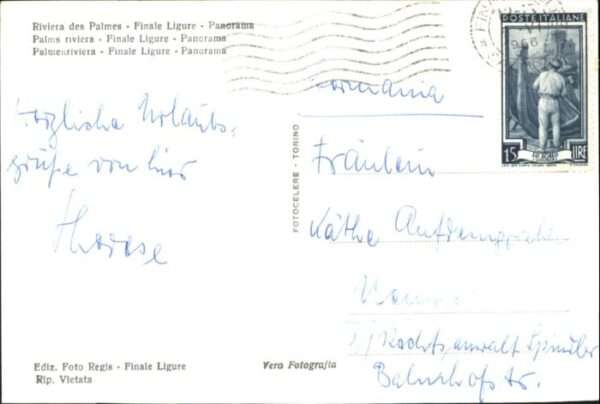 Riviera des Palmes - Finale Ligure - Panorama
Palms riviera - Finale Ligure - Panorama
Palmenriviera - Finale Ligure - Panorama
Herzliche Urlaubs-
grüße von hier
Therese
Ediz. Foto Regis - Finale Ligure
Rip. Vietata
Vera Fotografia
FOTOCELERE - TORINO
POSTE ITALIANE
15 LIRE
Germania
Fräulein
Käthe
Rechtsanwalt
Bahnhofstr.